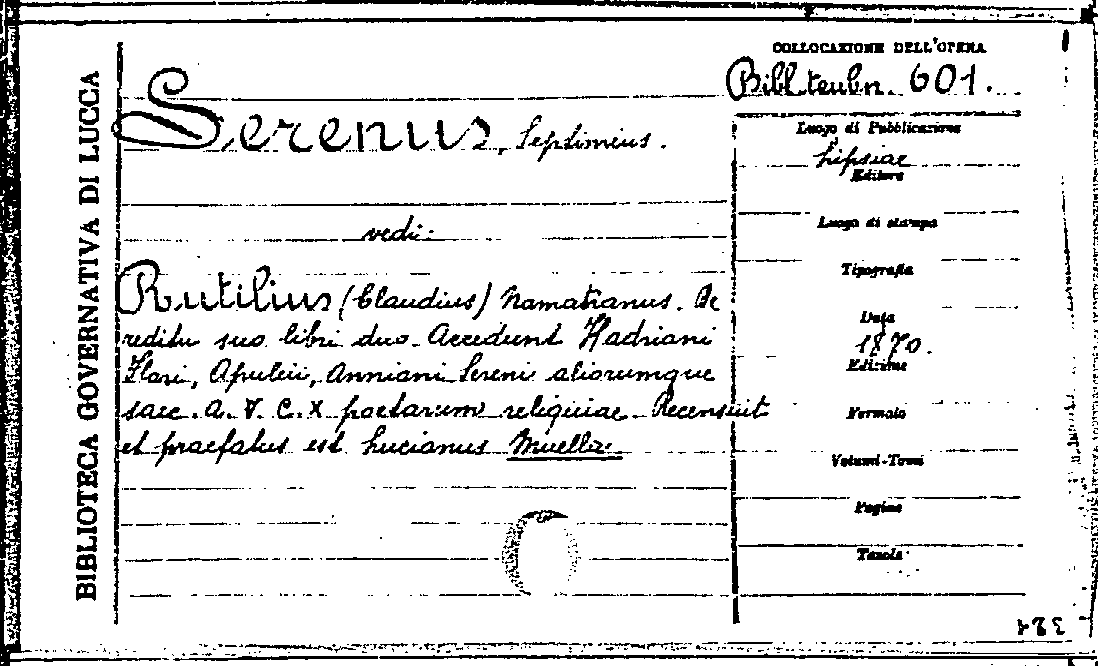 BIBLIOTECA GOVERNATIVA DI LUCCA
COLLOCAZIONE DELL'OPERA
Bibl. teubn. 601.
Serenus, Septimius.
vedi:
Rutilius (Claudius) Namatianus. De
reditu suo libri duo. Accedunt Hadriani
Flori, Apuleii, Anniani Sereni aliorumque
saec. a. V. C. X poetarum reliquiae. Recensuit
et praefatus est Lucianus Mueller.
Luogo di Pubblicazione
Lipsiae
Editore
Luogo di stampa
Tipografia
Data
1870.
Edizione
Formato
Volumi-Tomi
Pagine
Tavole